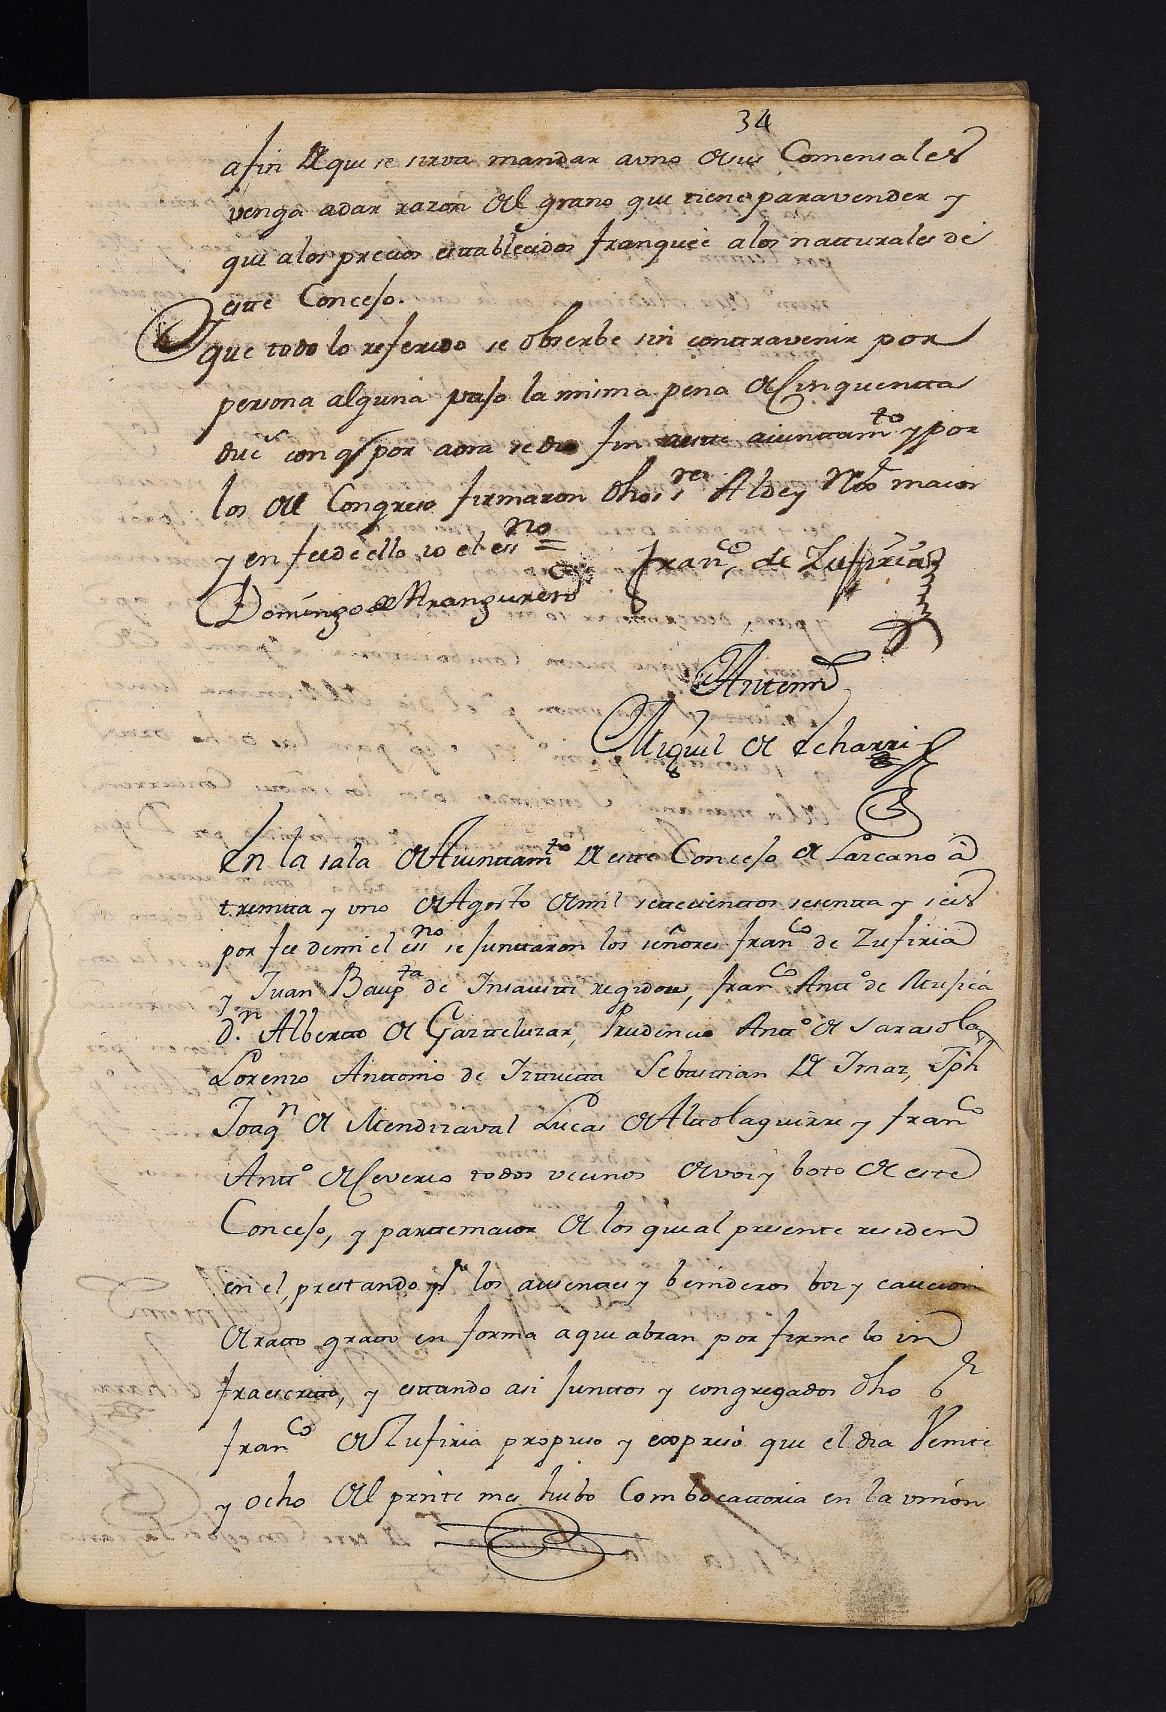 34
afin de que se sirva mandar a uno de sus Comensales
venga a dar razon del grano que tiene para vender y
que a los precios establecidos franqueè a los natturales de
este Concejo.
Y que todo lo referido se obserbe sin conttravenir por
persona alguna vajo la misma pena de Cinquentta
duc.s con q por aora se dio fin a este aiunttam.to y por
los del Congreso firmaron dhos s.res Alde y Rex.or maior
y en fee de ello, io el ess.no =
Domingo de Aranguren
Fran.co de Zufiria
Antemi
Miguel de Echarri
En la sala de Aiunttam.to de este Concejo de Lazcano à
treintta y uno de Agosto de mil settecienttos sesentta y seis
por fee de mi el ess.no se junttaron los señores fran.co de Zufiria
y Juan Baup.ta de Insausti regidores, fran.co Antt.o de Musica
d.n Albertto de Gaztteluzar, Prudencio Antt.o de Sarasola
Lorenzo Anttonio de Iztuetta Sebasttian de Imaz, Jph
Joaq.n de Mendizaval Lucas de Alcolaguirre y fran.co
Antt.o de todos vecinos de voz y boto de este
Concejo, y partte maior de los que al presente residen
en el, presttando p.r los ausenttes y benideros boz y caucion
de ratto gratto en forma a que abran por firme lo in
fraescritto, y esttando asi junttos y congregados dho s.r
fran.co de Zufiria propuso y expresò que el dia Veinte
y ocho del pnte mes hubo Combocattoria en la unión